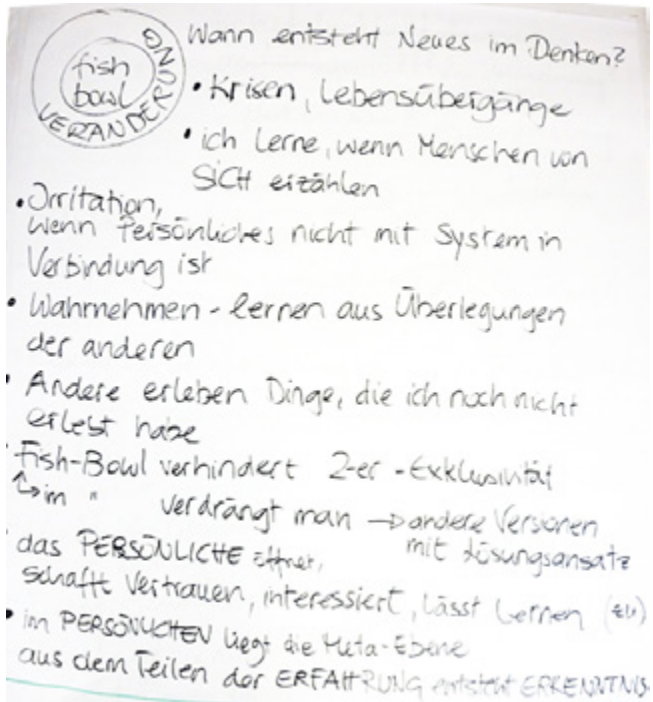 fish
bowl
VERÄNDERUNG
Wann entsteht Neues im Denken?
• Krisen, Lebensübergänge
• ich lerne, wenn Menschen von
SICH erzählen
• Irritation,
wenn Persönliches nicht mit System in
Verbindung ist
• Wahrnehmen - lernen aus Überlegungen
der anderen
• Andere erleben Dinge, die ich noch nicht
erlebt habe
Fish-Bowl verhindert 2-er-Exklusivität
↳ im " verdrängt man → andere Versionen
mit Lösungsansatz
das PERSÖNLICHE öffnet,
schafft Vertrauen, interessiert, lässt lernen (zu)
• im PERSÖNLICHEN liegt die Meta-Ebene
aus dem Teilen der ERFAHRUNG entsteht ERKENNTNIS